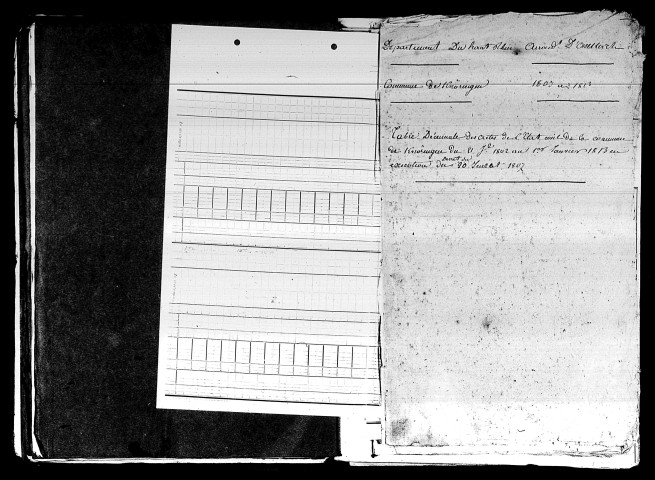 Département Du haut Rhin Arrond.t D'
Commune de Knoringue 1803 a 1812
Table Décennale des actes de l'Etat civil de la commune
de Knoringue du 1802 au 1er Janvier 1813 en
execution du decret du 20 Juillet 1807